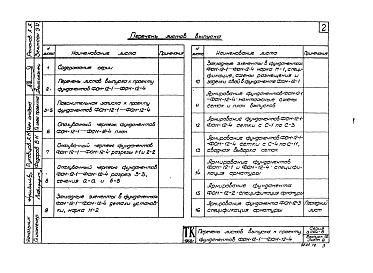 2
Перечень листов выпуска
№ листа
Наименование листа
Примечание
1
Содержание серии
2
Перечень листов выпуска к проекту
фундаментов ФОН-12-1 — ФОН-12-4
3-5
Пояснительная записка к проекту
фундаментов ФОН-12-1 — ФОН-12-4
6
Опалубочный чертеж фундаментов
ФОН-12-1 — ФОН-12-4 план
7
Опалубочный чертеж фундаментов
ФОН-12-1 — ФОН-12-4 разрезы 1-1 и 2-2
8
Опалубочный чертеж фундаментов
ФОН-12-1 — ФОН-12-4 разрез 3-3,
сечения а-а и б-б
9
Закладные элементы в фундаментах
ФОН-12-1 — ФОН-12-4 детали
марка М-2
№ листа
Наименование листа
Примечания
10
Закладные элементы в фундаментах
ФОН-12-1 — ФОН-12-4 марка М-1, специ-
фикация, схемы размещения и
11
Армирование фундаментов ФОН-12-1
— ФОН-12-4 схемы
сеток и план выпусков
12
Армирование фундаментов ФОН-12-1 —
ФОН-12-4 сетки с С-1 по С-3
13
Армирование фундаментов ФОН-12-1 —
ФОН-12-4 сетки с С-4 по С-11,
сварная выборка сеток
14
Армирование фундаментов
ФОН-12-1 и ФОН-12-4 специфи-
кация арматуры
15
Армирование фундамента
ФОН-12-2 спецификация арматуры
Армирование фундамента ФОН-12-3
спецификация арматуры
лист
ТК
Перечень листов выпуска к проекту
фундаментов ФОН-12-1 — ФОН-12-4
Серия
Лист